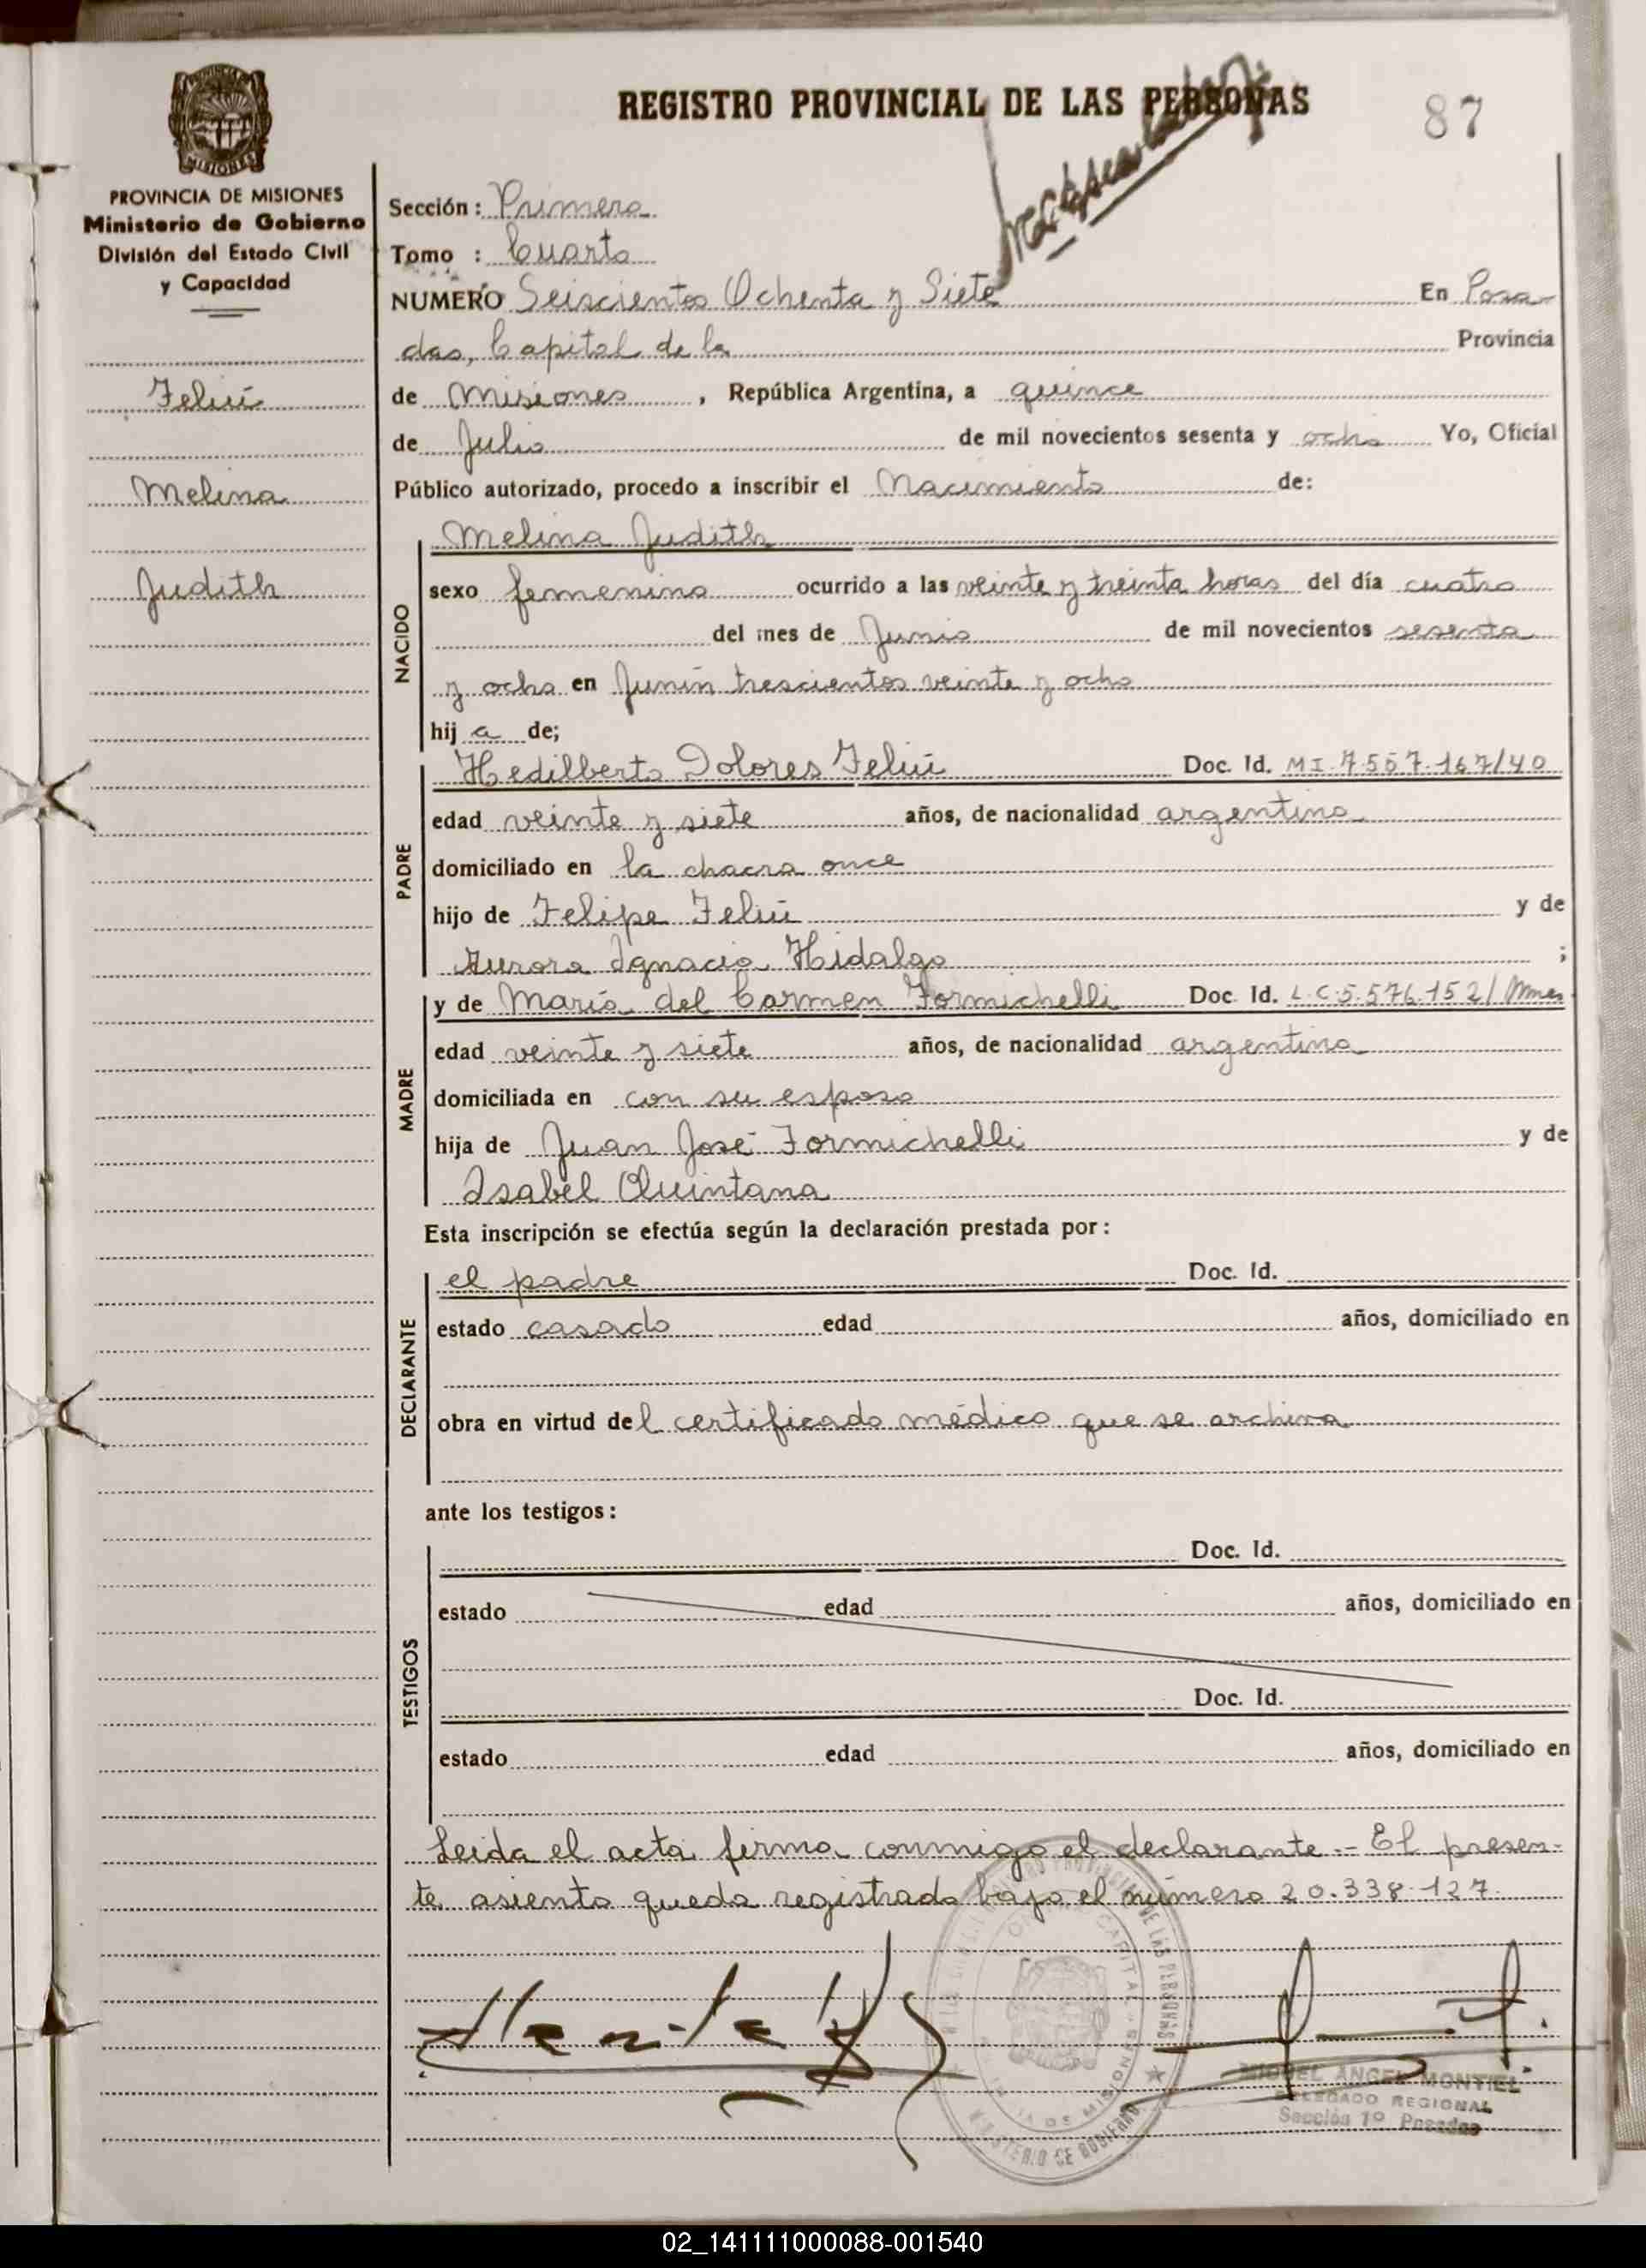 REGISTRO PROVINCIAL DE LAS PERSONAS
87
PROVINCIA DE MISIONES
Ministerio de Gobierno
División del Estado Civil
y Capacidad
Feliú
Melina
Judith
Sección: Primera
Tomo : Cuarto
NUMERO Seiscientos Ochenta y Siete En Posa-
das, Capital de la Provincia
de Misiones, República Argentina, a quince
de Julio de mil novecientos sesenta y ocho Yo, Oficial
Público autorizado, procedo a inscribir el Nacimiento de:
NACIDO
Melina Judith
sexo femenino ocurrido a las veinte y treinta horas del día cuatro
del mes de Junio de mil novecientos sesenta
y ocho en Junín trescientos veinte y ocho
hija de;
PADRE
Hedilberto Dolores Feliú Doc. Id. MI.7.557.167/40
edad veinte y siete años, de nacionalidad argentino
domiciliado en la chacra once
hijo de Felipe Feliú y de
Aurora Ignacia Hidalgo ;
MADRE
y de María del Carmen Formichelli Doc. Id. L.C.5.576.152/
edad veinte y siete años, de nacionalidad argentina
domiciliada en con su esposo
hija de Juan José Formichelli y de
Isabel Quintana
Esta inscripción se efectúa según la declaración prestada por:
DECLARANTE
el padre Doc. Id.
estado casado edad años, domiciliado en
obra en virtud del certificado médico que se archiva
ante los testigos:
TESTIGOS
Doc. Id.
estado edad años, domiciliado en
Doc. Id.
estado edad años, domiciliado en
Leida el acta firma conmigo el declarante.- El presen-
te asiento queda registrado bajo el número 20.338.127.
MIGUEL ANGEL MONTIEL
DELEGADO REGIONAL
Sección 1º Posadas
02_141111000088-001540